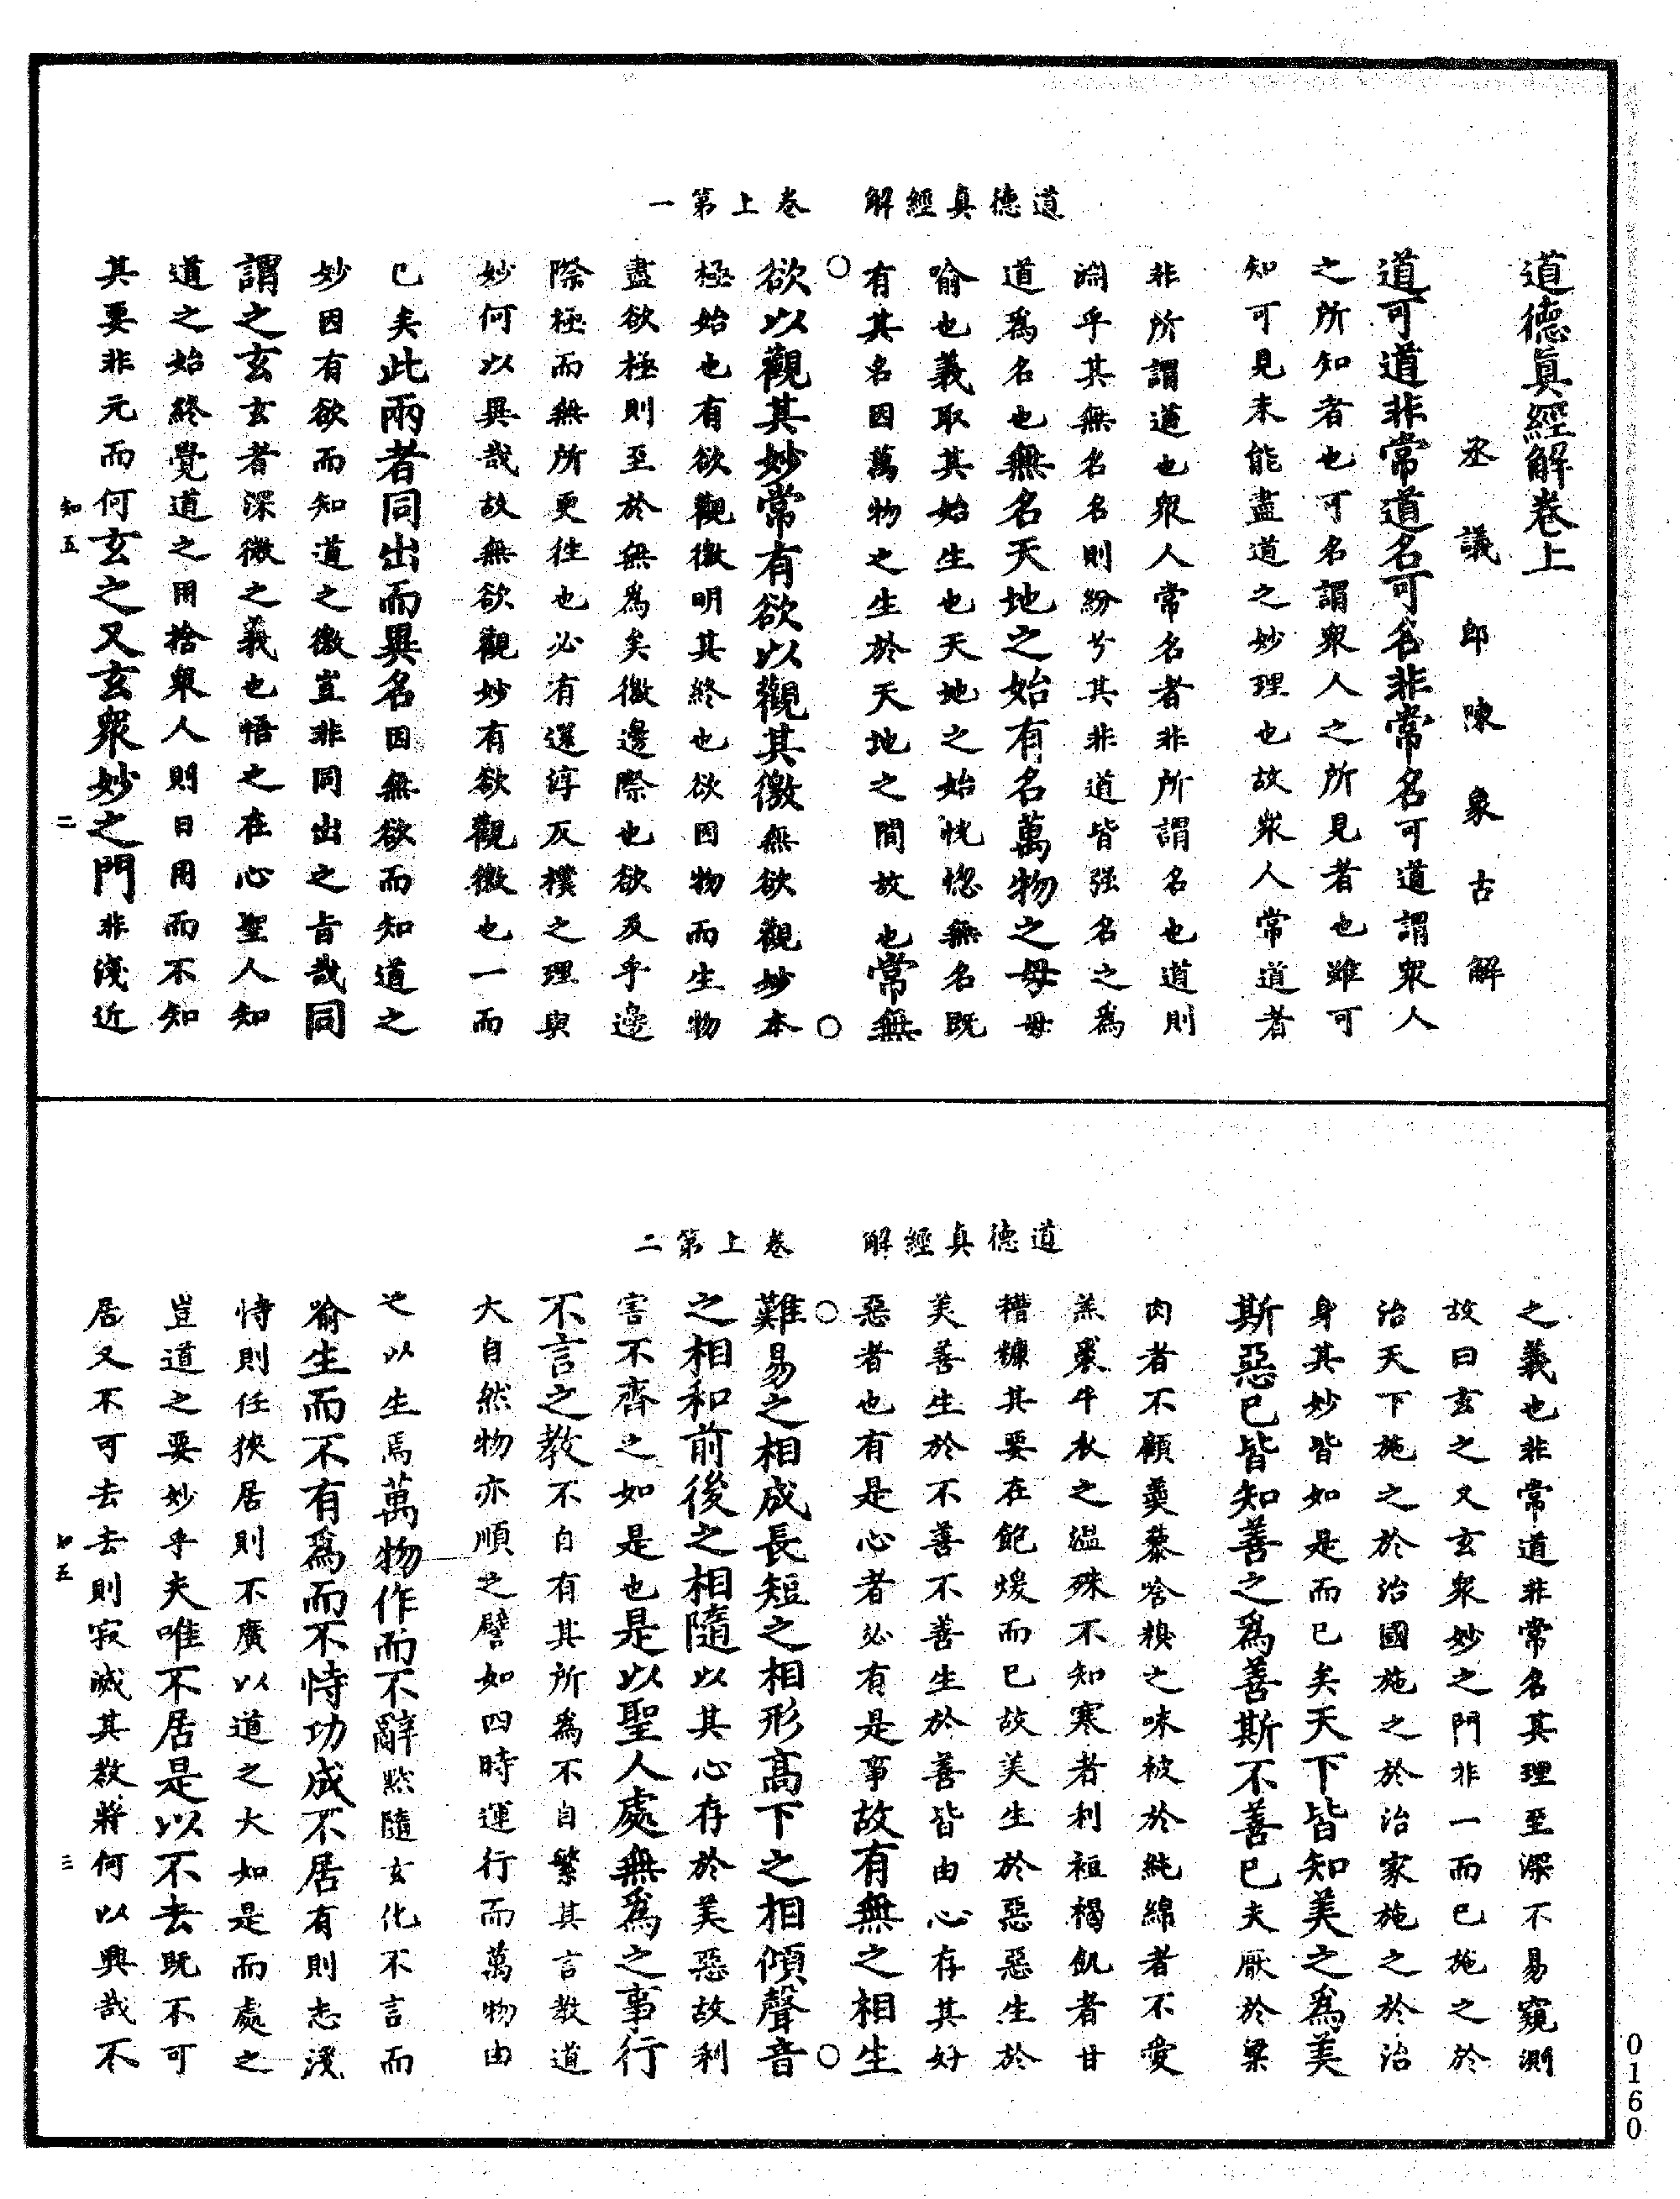 道德真經解　卷上第一
道德真經解卷上
丞議郎陳象古解
道可道非常道名可名非常名可道謂眾人
之所知者也可名謂眾人之所見者也雖可
知可見未能盡道之妙理也故眾人常道者
非所謂道也眾人常名者非所謂名也道則
淵乎其無名名則紛兮其非道皆强名之爲
道爲名也無名天地之始有名萬物之母母
喻也義取其始生也天地之始恍惚無名既
有其名因萬物之生於天地之間故也常無
○○
欲以觀其妙常有欲以觀其徼無欲觀妙本
極始也有欲觀徼明其終也欲因物而生物
盡欲極則至於無爲矣徼邊際也欲及乎邊
際極而無所更往也必有還淳反樸之理與
妙何以異哉故無欲觀妙有欲觀徼也一而
已矣此兩者同出而異名因無欲而知道之
妙因有欲而知道之徼豈非同出之旨哉同
謂之玄玄者深微之義也悟之在心聖人知
道之始終覺道之用捨眾人則日用而不知
其要非元而何玄之又玄眾妙之門非淺近
知五　二
道德真經解　卷上第二
之義也非常道非常名其理至深不易窺測
故曰玄之又玄眾妙之門非一而已施之於
治天下施之於治國施之於治家施之於治
身其妙皆如是而已矣天下皆知美之爲美
斯惡已皆知善之爲善斯不善已夫厭於粱
肉者不顧羹藜唅糗之味被於純綿者不愛
羔裘牛衣之溫殊不知寒者利裋褐飢者甘
糟糠其要在飽煖而已故美生於惡惡生於
美善生於不善不善生於善皆由心存其好
惡者也有是心者必有是事故有無之相生
○○
難易之相成長短之相形高下之相傾聲音
之相和前後之相隨以其心存於美惡故利
害不齊之如是也是以聖人處無爲之事行
不言之教不自有其所爲不自繁其言教道
大自然物亦順之譬如四時運行而萬物由
之以生焉萬物作而不辭默隨玄化不言而
喻生而不有爲而不恃功成不居有則志淺
恃則任狹居則不廣以道之大如是而處之
豈道之要妙乎夫唯不居是以不去既不可
居又不可去去則寂滅其教將何以興哉不
知五　三
0160